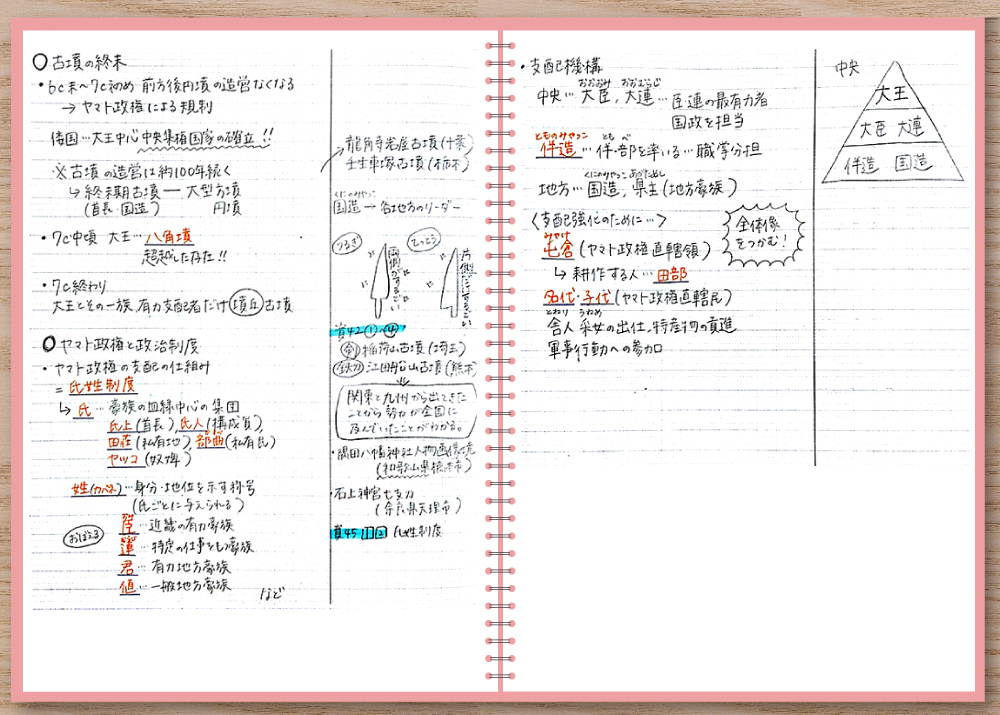 ○ 古墳の終末
・6c末〜7c初め 前方後円墳の造営なくなる
→ ヤマト政権による規制
倭国…大王中心 中央集権国家の確立!!
※古墳の造営は約100年続く
↳ 終末期古墳 ー 大型方墳
(首長・国造) 円墳
・7c中頃 大王…八角墳
超越した存在!!
・7c終わり
大王とその一族、有力支配者だけ 墳丘 古墳
○ ヤマト政権と政治制度
・ヤマト政権の支配の仕組み
= 氏姓制度
↳ 氏…豪族の血縁中心の集団
氏上(首長)、氏人(構成員)
田荘(私有地)、部曲(私有民)
ヤツコ(奴婢)
姓(カバネ)…身分・地位を示す称号
(氏ごとに与えられる)
おぼえる
臣…近畿の有力豪族
連…特定の仕事をもつ豪族
君…有力地方豪族
値…一般地方豪族
など
龍角寺岩屋古墳(千葉)
壬生車塚古墳(栃木)
くにのみやっこ
国造 → 各地方のリーダー
つるぎ
両側がするどい
てっとう
片側だけするどい
資42 ① ④
剣 稲荷山古墳(埼玉)
鉄刀 江田船山古墳(熊本)
関東と九州から出てきた
ことから勢力が全国に
及んでいたことがわかる。
・隅田八幡神社人物画像鏡
(和歌山県橋本市)
・石上神宮七支刀
(奈良県天理市)
資45 1 2 氏姓制度
・支配機構
おおおみ おおむらじ
中央…大臣、大連…臣・連の最有力者
国政を担当
とものみやつこ とも べ
伴造…伴・部を率いる…職掌分担
くにのみやつこ あがたぬし
地方…国造、県主(地方豪族)
〈支配強化のために…〉
みやけ
屯倉(ヤマト政権直轄領)
↳ 耕作する人…田部
名代・子代(ヤマト政権直轄民)
とねり うねめ
舎人 采女の出仕、特産物の貢進
軍事行動への参加
全体像
をつかむ!
中央
大王
大臣 大連
伴造 国造